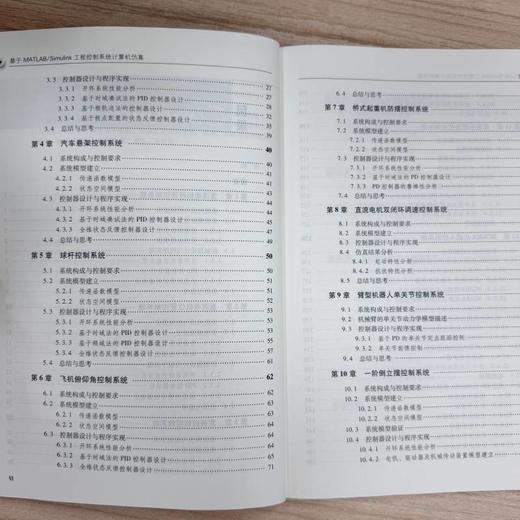 基于MATLAB/Simulink工程控制系统计算机仿真
3.3 控制器设计与程序实现 27
3.3.1 开环系统性能分析 27
3.3.2 基于时域凑试法的PID控制器设计
3.3.3 基于根轨迹法的控制器设计
3.3.4 基于极点配置的状态反馈控制器设计
3.4 总结与思考
第4章 汽车悬架控制系统 40
4.1 系统构成与控制要求
4.2 系统模型建立
4.2.1 传递函数模型
4.2.2 状态空间模型
4.3 控制器设计与程序实现
4.3.1 开环系统性能分析
4.3.2 基于时域法的PID控制器设计
4.3.3 全维状态反馈控制器设计
4.4 总结与思考
第5章 球杆控制系统 50
5.1 系统构成与控制要求 50
5.2 系统模型建立
5.2.1 传递函数模型
5.2.2 状态空间模型
5.3 控制器设计与程序实现
5.3.1 开环系统性能分析
5.3.2 基于时域法的PID控制器设计
5.3.3 基于频域法的PID控制器设计
5.3.4 全维状态反馈控制器设计
5.4 总结与思考
第6章 飞机俯仰角控制系统 62
6.1 系统构成与控制要求 62
6.2 系统模型建立
6.2.1 传递函数模型
6.2.2 状态空间模型 64
6.3 控制器设计与程序实现 65
6.3.1 开环系统性能分析 65
6.3.2 基于时域法的PID控制器设计 67
6.3.3 全维状态反馈控制器设计 71
VI
6.4 总结与思考
第7章 桥式起重机防摆控制系统
7.1 系统构成与控制要求
7.2 系统模型建立
7.2.1 传递函数模型
7.2.2 状态空间模型
7.3 控制器设计与程序实现
7.3.1 开环系统性能分析
7.3.2 基于时域法的PD控制器设计
7.3.3 PD控制器的鲁棒性分析
7.4 总结与思考
第8章 直流电机双闭环调速控制系统
8.1 系统构成与控制要求
8.2 系统模型建立
8.3 控制器设计与程序实现
8.4 仿真结果分析
8.4.1 起动特性分析
8.4.2 抗扰特性分析
8.5 总结与思考
第9章 臂型机器人单关节控制系统
9.1 系统构成与控制要求
9.2 机械臂的单关节动力学模型描述
9.3 控制器设计与程序实现
9.3.1 基于PD的单关节定点跟踪控制
9.3.2 单关节前馈控制
9.4 总结与思考
第10章 一阶倒立摆控制系统
10.1 系统构成与控制要求
10.2 系统模型建立
10.2.1 传递函数模型
10.2.2 状态空间模型
10.3 系统模型验证
10.4 控制器设计与程序实现
10.4.1 开环系统性能分析
10.4.2 电机、驱动器及机械传动装置模型建立